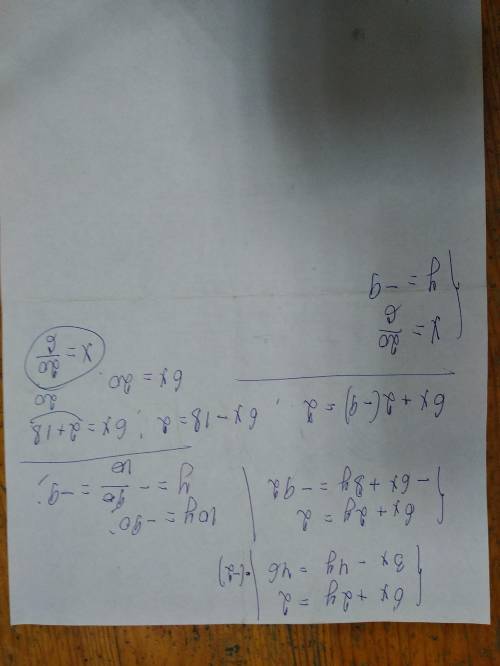 6x + 2y = 2
3x - 4y = 46 | ·(-2)
6x + 2y = 2
-6x + 8y = -92
10y = -90;
y = -90/10 = -9;
6x + 2(-9) = 2; 6x - 18 = 2; 6x = 2+18
20
6x = 20. x = 20/6
x = 20/6
y = -9